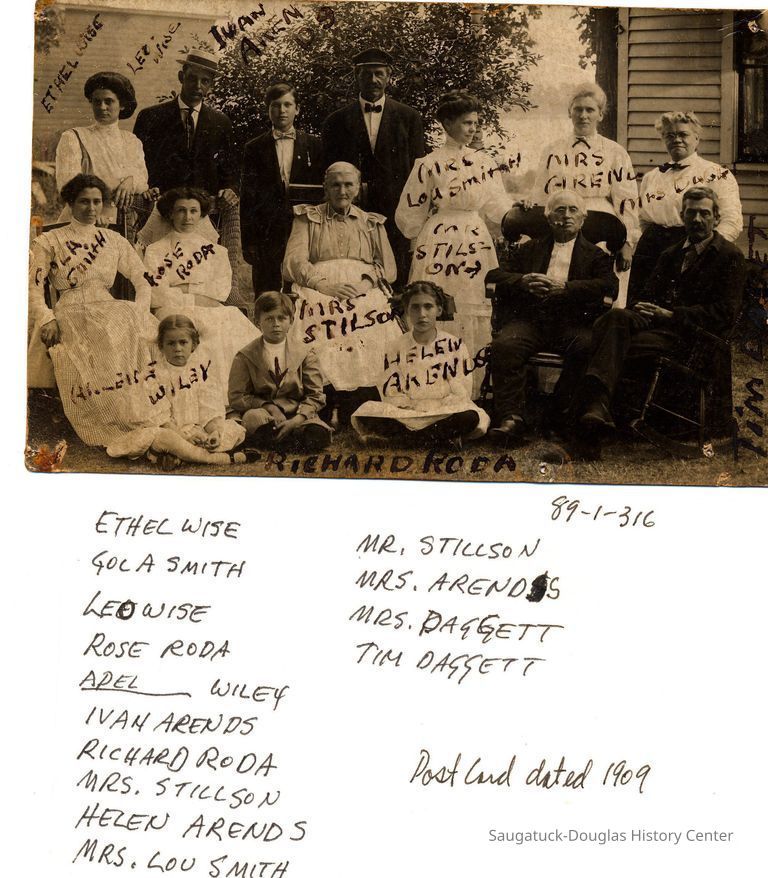 ETHEL WISE
LEO WISE
IVAN ARENDS
MRS LOU SMITH
MRS ARENDS
GOLA SMITH
ROSE RODA
MR STILSON
MRS STILSON
HELEN ARENDS
WILEY
RICHARD RODA
89-1-316
ETHEL WISE
GOLA SMITH
LEO WISE
ROSE RODA
ADEL____ WILEY
IVAN ARENDS
RICHARD RODA
MRS. STILLSON
HELEN ARENDS
MRS. LOU SMITH
MR. STILLSON
MRS. ARENDS
MRS. DAGGETT
TIM DAGGETT
Post Card dated 1909
Saugatuck-Douglas History Center